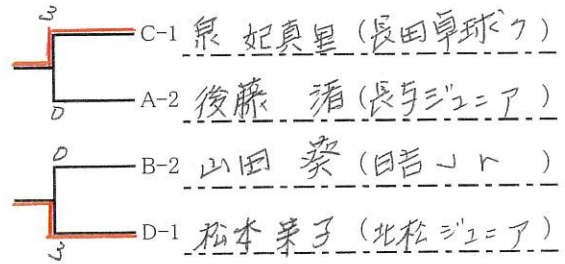 3 C-1 泉 妃真里 (長田卓球ク)
0 A-2 後藤 渚 (長与ジュニア)
0 B-2 山田 葵 (日吉Jr)
3 D-1 松本 菜子 (北松ジュニア)